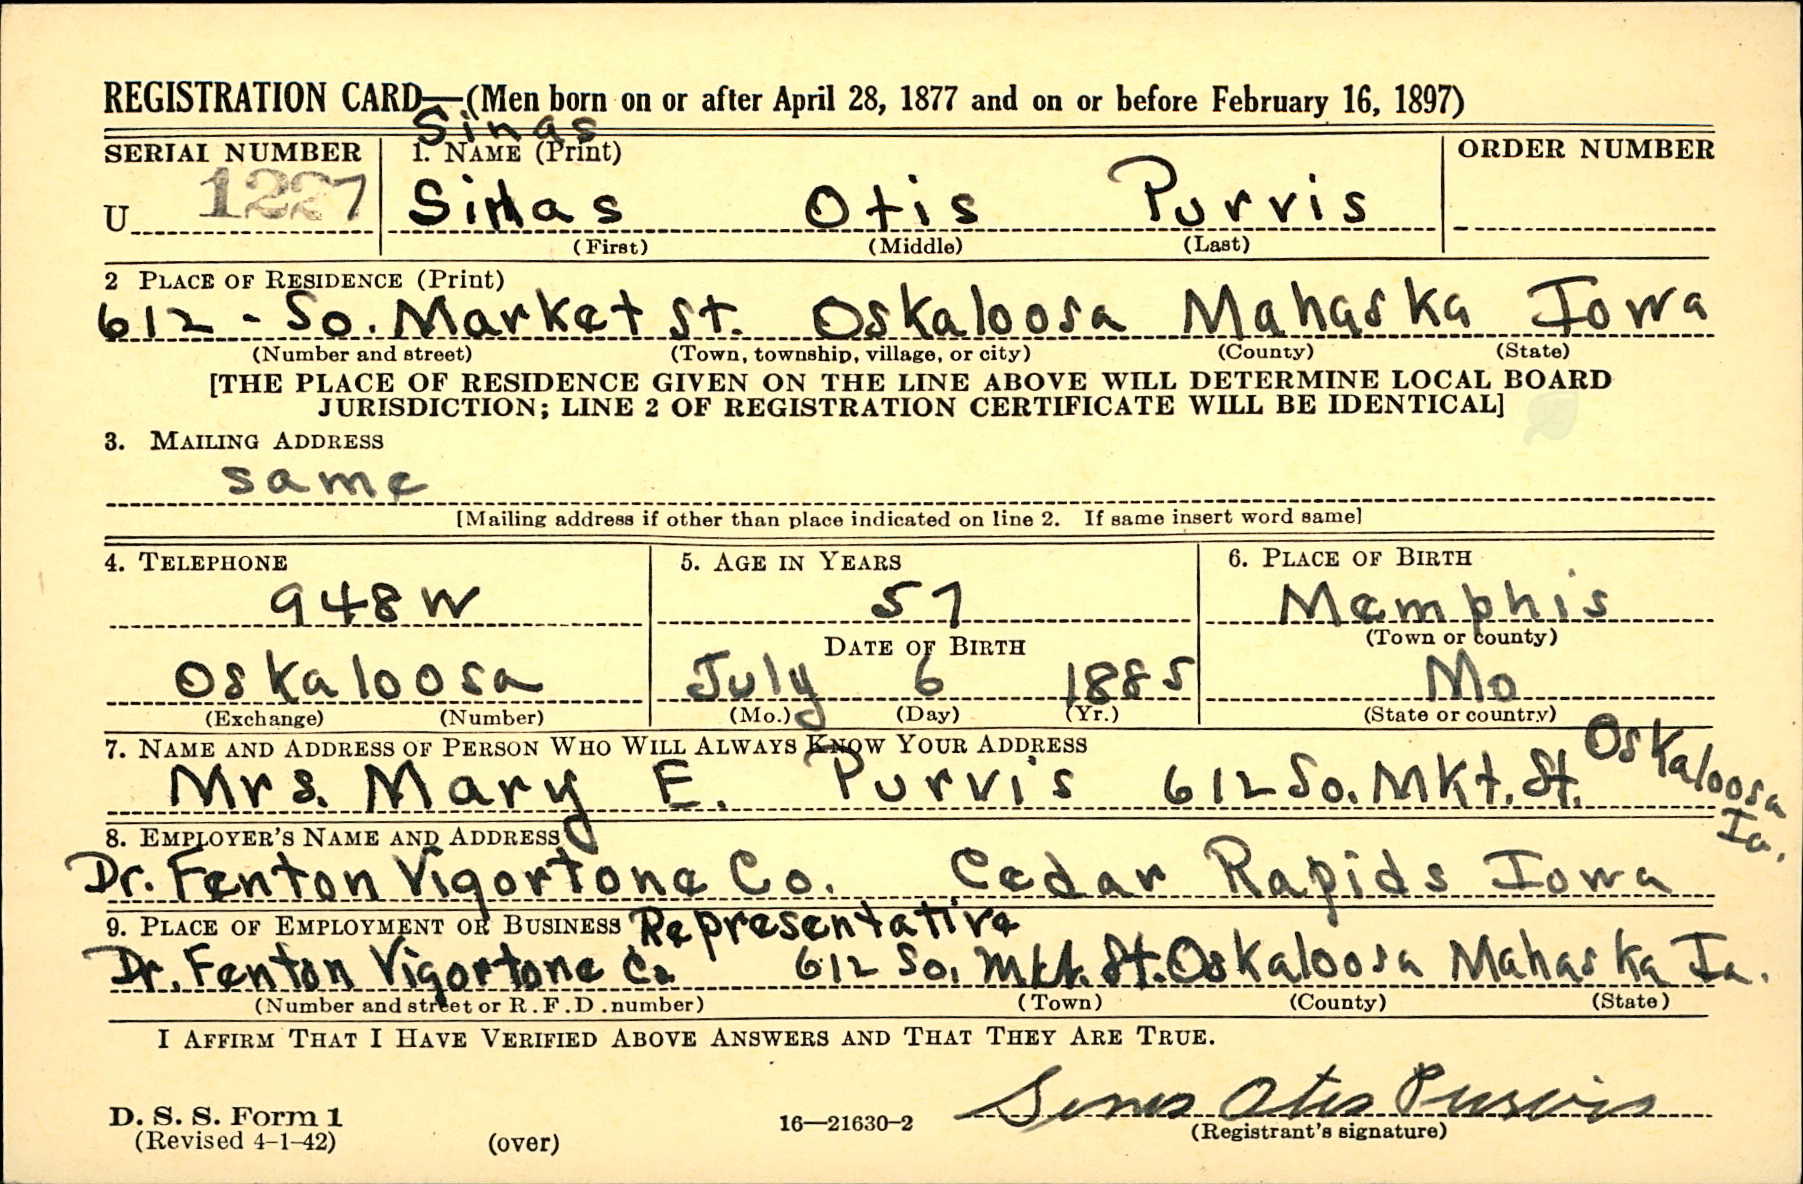 REGISTRATION CARD—(Men born on or after April 28, 1877 and on or before February 16, 1897)
Sinas
SERIAL NUMBER 1. NAME (Print) ORDER NUMBER
U 1227 Sinas Otis Purvis
(First) (Middle) (Last)
2 PLACE OF RESIDENCE (Print)
612 - So. Market St. Oskaloosa Mahaska Iowa
(Number and street) (Town, township, village, or city) (County) (State)
[THE PLACE OF RESIDENCE GIVEN ON THE LINE ABOVE WILL DETERMINE LOCAL BOARD
JURISDICTION; LINE 2 OF REGISTRATION CERTIFICATE WILL BE IDENTICAL]
3. MAILING ADDRESS
same
[Mailing address if other than place indicated on line 2. If same insert word same]
4. TELEPHONE 5. AGE IN YEARS 6. PLACE OF BIRTH
948W 57 Memphis
DATE OF BIRTH (Town or county)
Oskaloosa July 6 1885 Mo
(Exchange) (Number) (Mo.) (Day) (Yr.) (State or country)
7. NAME AND ADDRESS OF PERSON WHO WILL ALWAYS KNOW YOUR ADDRESS
Mrs. Mary E. Purvis 612 So. Mkt. St. Oskaloosa
Ia.
8. EMPLOYER'S NAME AND ADDRESS
Dr. Fenton Vigortone Co. Cedar Rapids Iowa
9. PLACE OF EMPLOYMENT OR BUSINESS Representative
Dr. Fenton Vigortone Co 612 So. Mkt. St. Oskaloosa Mahaska Ia.
(Number and street or R.F.D. number) (Town) (County) (State)
I AFFIRM THAT I HAVE VERIFIED ABOVE ANSWERS AND THAT THEY ARE TRUE.
Sines Otis Purvis
D. S. S. Form 1
(Revised 4-1-42) (over) 16—21630-2 (Registrant's signature)